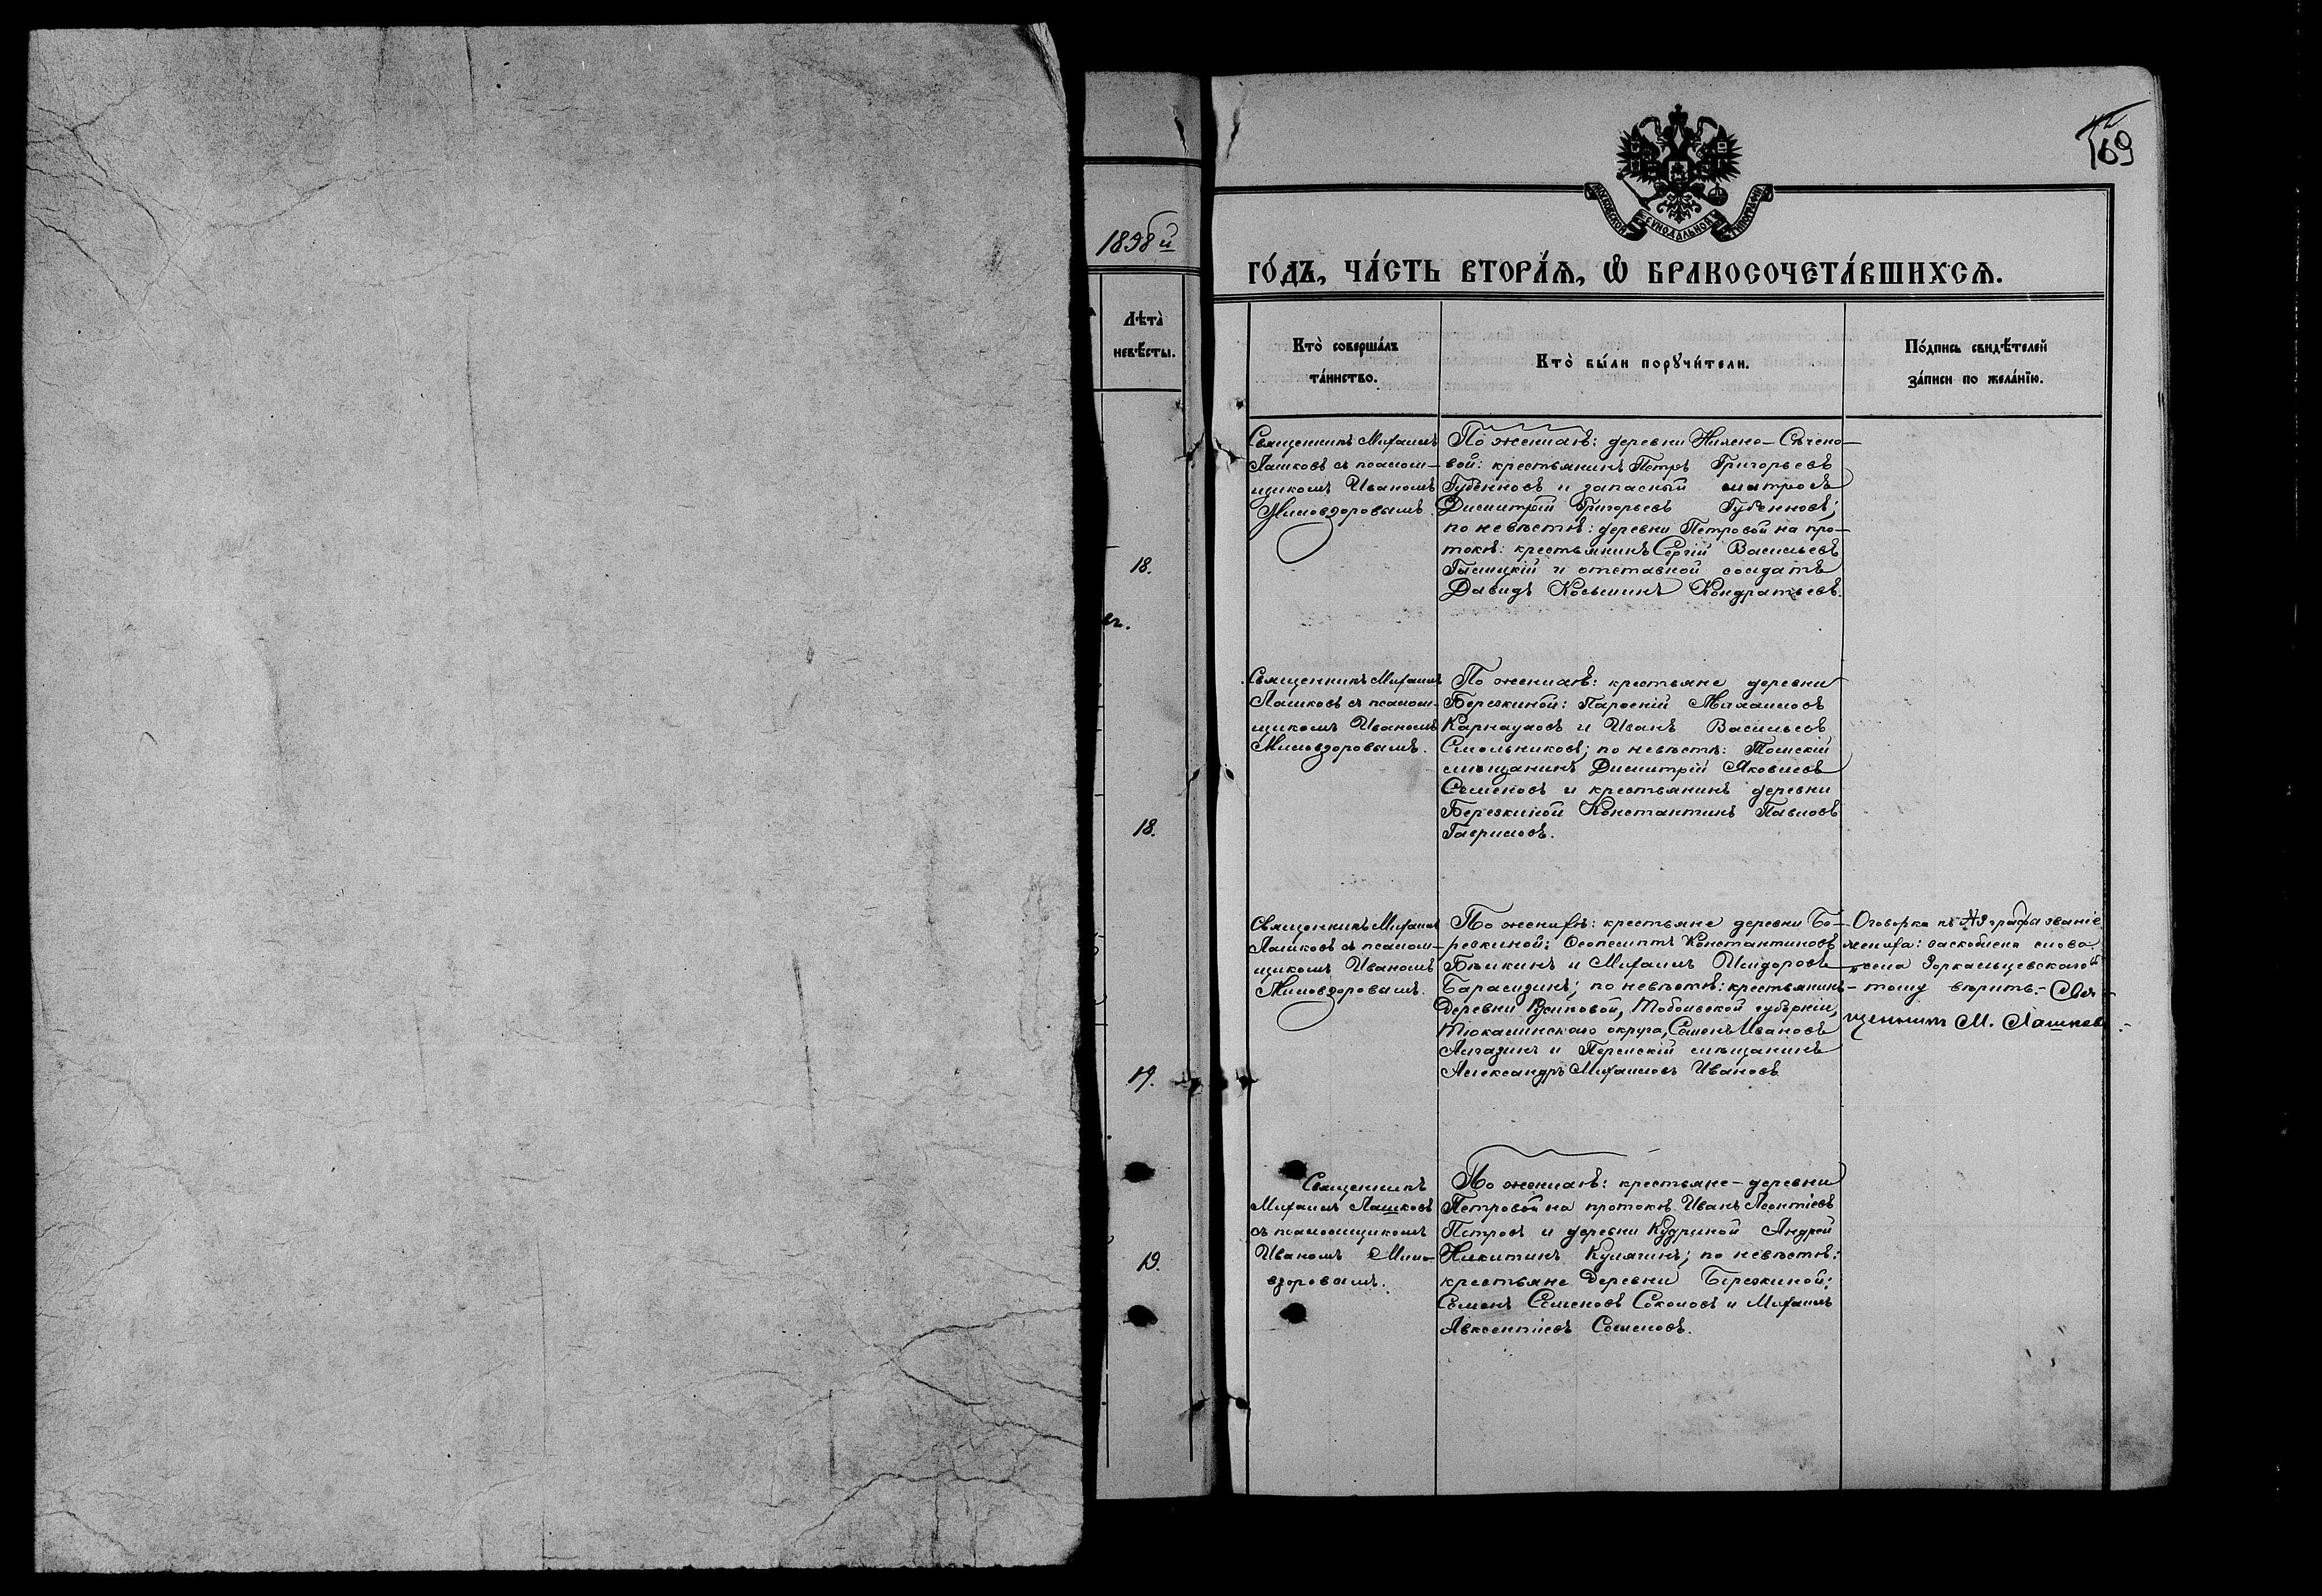 169
МОСКОВСКОЙ СѴНОДАЛЬНОЙ ТИПОГРАФІИ
1898й
го́дъ, ча́сть втора́ѧ, ѡ҆ бракосочета́вшихсѧ.
Лѣта̀
невѣ́сты.
Кто̀ соверша́лъ
та́инство.
Кто̀ бы́ли порꙋчи́тели.
По́дпись свидѣ́телей
за́писи по жела́нїю.
18.
Священникъ Михаилъ
Лашковъ съ псалом-
щикомъ Иваномъ
Миловзоровымъ.
По женихѣ: деревни Нижено-Сѣчено-
вой: крестьянинъ Петръ Григорьевъ
Губенновъ и запасный матросъ
Димитрій Григорьевъ Губенновъ;
по невѣстѣ: деревни Петровой на про-
токѣ: крестьянинъ Сергій Васильевъ
и отставной солдатъ
Давидъ Косьминъ Кондратьевъ.
18.
Священникъ Михаилъ
Лашковъ съ псалом-
щикомъ Иваномъ
Миловзоровымъ.
По женихѣ: крестьяне деревни
Березкиной: Парѳеній Михаиловъ
Карнауховъ и Иванъ Васильевъ
Смольниковъ; по невѣстѣ: Томскій
мѣщанинъ Димитрій Яковлевъ
Семеновъ и крестьянинъ деревни
Березкиной Константинъ Павловъ
Гавриловъ.
19.
Священникъ Михаилъ
Лашковъ съ псалом-
щикомъ Иваномъ
Миловзоровымъ.
По женихѣ: крестьяне деревни Бе-
резкиной: Ѳеопемптъ Константиновъ
Бѣлкинъ и Михаилъ Исидоровъ
; по невѣстѣ: крестьянинъ
деревни Тобольской губерніи,
Тюкалинскаго округа, Семенъ Ивановъ
и мѣщанинъ
Александръ Михаиловъ Ивановъ.
Оговорка къ графы званіе
жениха: слова
"села Зоркальцевскаго"
тому вѣрить.- Свя-
щенникъ М. Лашковъ
19.
Священникъ
Михаилъ Лашковъ
съ псаломщикомъ
Иваномъ Мило-
взоровымъ.
По женихѣ: крестьяне-деревни
Петровой на протокѣ Иванъ Леонтіевъ
Петровъ и деревни Кудриной Андрей
Никитинъ Кулягинъ; по невѣстѣ:
крестьяне деревни Березкиной:
Семенъ Семеновъ Соколовъ и Михаилъ
Авксентіевъ Семеновъ.